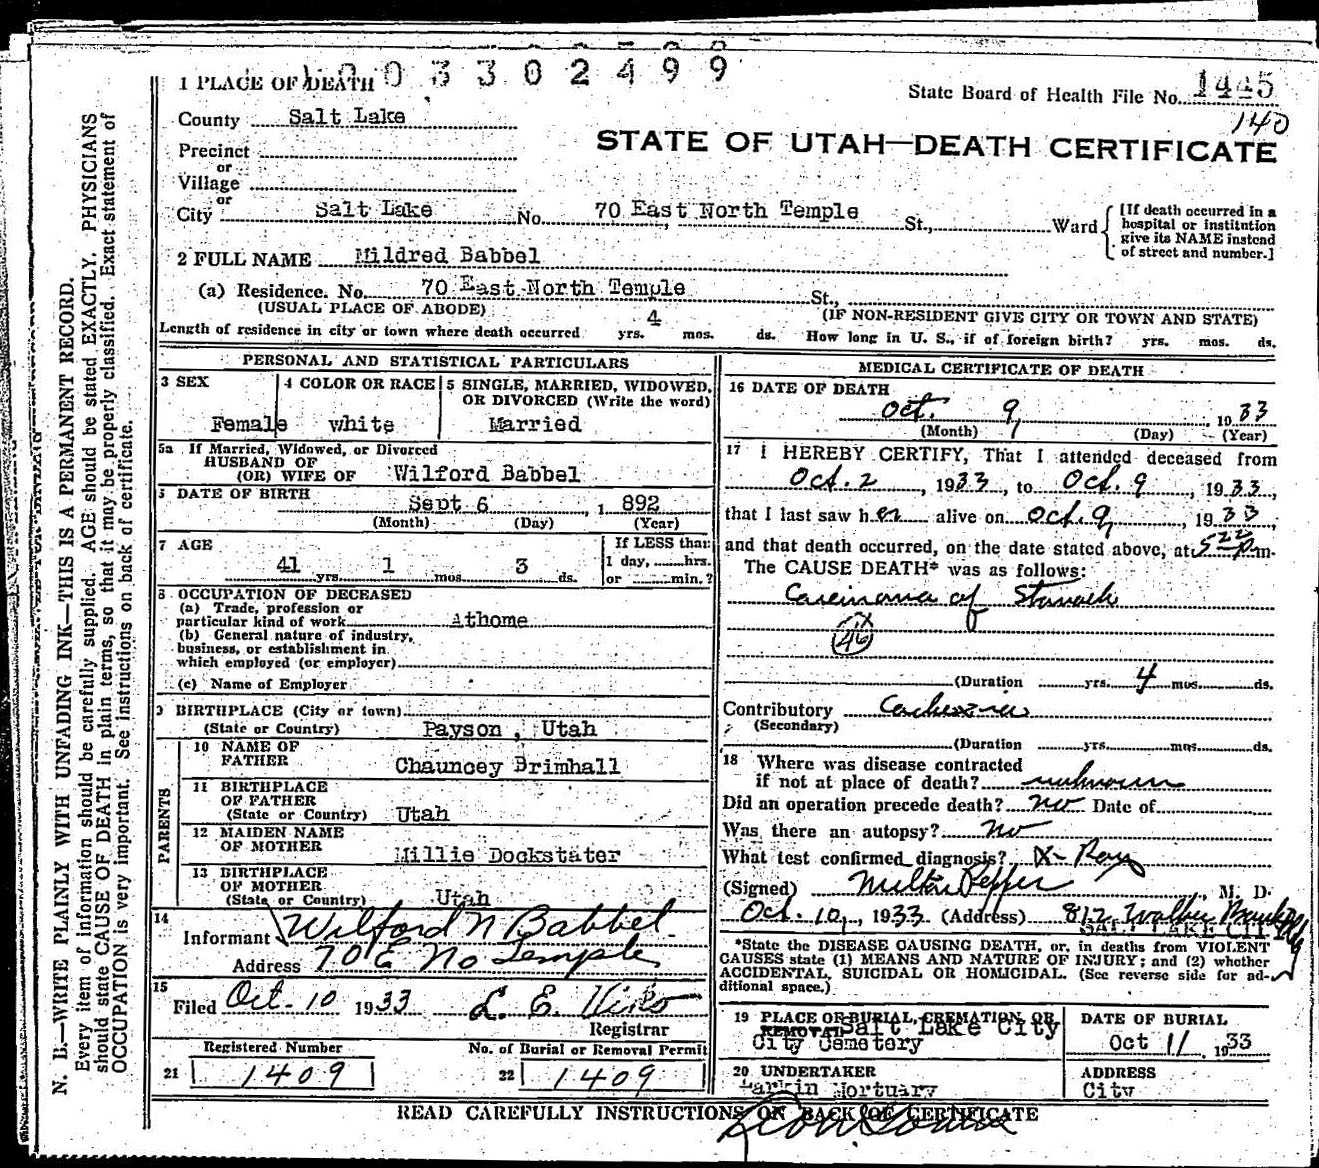 003302499
1 PLACE OF DEATH
State Board of Health File No. 1445
140
County Salt Lake
STATE OF UTAH—DEATH CERTIFICATE
Precinct
or
Village
or
City Salt Lake No. 70 East North Temple St., Ward
[If death occurred in a hospital or institution give its NAME instead of street and number.]
2 FULL NAME Mildred Babbel
(a) Residence. No. 70 East North Temple St.,
(USUAL PLACE OF ABODE) (IF NON-RESIDENT GIVE CITY OR TOWN AND STATE)
Length of residence in city or town where death occurred yrs. 4 mos. ds. How long in U. S., if of foreign birth? yrs. mos. ds.
PERSONAL AND STATISTICAL PARTICULARS
3 SEX 4 COLOR OR RACE 5 SINGLE, MARRIED, WIDOWED,
OR DIVORCED (Write the word)
Female white Married
5a If Married, Widowed, or Divorced
HUSBAND OF
(OR) WIFE OF Wilford Babbel
DATE OF BIRTH Sept 6, 1892
(Month) (Day) (Year)
7 AGE If LESS than
41 yrs. 1 mos. 3 ds. 1 day, hrs.
or min.?
8 OCCUPATION OF DECEASED
(a) Trade, profession or
particular kind of work Athome
(b) General nature of industry,
business, or establishment in
which employed (or employer)
(c) Name of Employer
9 BIRTHPLACE (City or town)
(State or Country) Payson, Utah
PARENTS
10 NAME OF
FATHER Chauncey Brimhall
11 BIRTHPLACE
OF FATHER
(State or Country) Utah
12 MAIDEN NAME
OF MOTHER Millie Dockstater
13 BIRTHPLACE
OF MOTHER
(State or Country) Utah
14
Informant Wilford N Babbel
Address 70 E No Temple
15
Filed Oct-10 1933 L. E.
Registrar
Registered Number No. of Burial or Removal Permit
21 1409 22 1409
MEDICAL CERTIFICATE OF DEATH
16 DATE OF DEATH
Oct. 9, 1933
(Month) (Day) (Year)
17 I HEREBY CERTIFY, That I attended deceased from
Oct. 2, 1933, to Oct. 9, 1933,
that I last saw her alive on Oct. 9, 1933,
and that death occurred, on the date stated above, at 5 22 P.m.
The CAUSE DEATH* was as follows:
Carcinoma of Stomach
46
(Duration yrs. 4 mos. ds.
Contributory Cachexia
(Secondary)
(Duration yrs. mos. ds.
18 Where was disease contracted
if not at place of death? unknown
Did an operation precede death? no Date of
Was there an autopsy? No
What test confirmed diagnosis? X-Ray
(Signed) Milton Pepper, M. D.
Oct. 10, 1933 (Address) 812 Walker Bank Bldg
SALT LAKE CITY
*State the DISEASE CAUSING DEATH, or, in deaths from VIOLENT
CAUSES state (1) MEANS AND NATURE OF INJURY; and (2) whether
ACCIDENTAL, SUICIDAL OR HOMICIDAL. (See reverse side for ad-
ditional space.)
19 PLACE OR BURIAL, CREMATION, OR DATE OF BURIAL
REMOVAL Salt Lake City
City Cemetery Oct 11 1933
20 UNDERTAKER ADDRESS
Larkin Mortuary City
READ CAREFULLY INSTRUCTIONS ON BACK OF CERTIFICATE
N. B.—WRITE PLAINLY WITH UNFADING INK—THIS IS A PERMANENT RECORD.
Every item of information should be carefully supplied. AGE should be stated EXACTLY. PHYSICIANS
should state CAUSE OF DEATH in plain terms, so that it may be properly classified. Exact statement of
OCCUPATION is very important. See instructions on back of certificate.